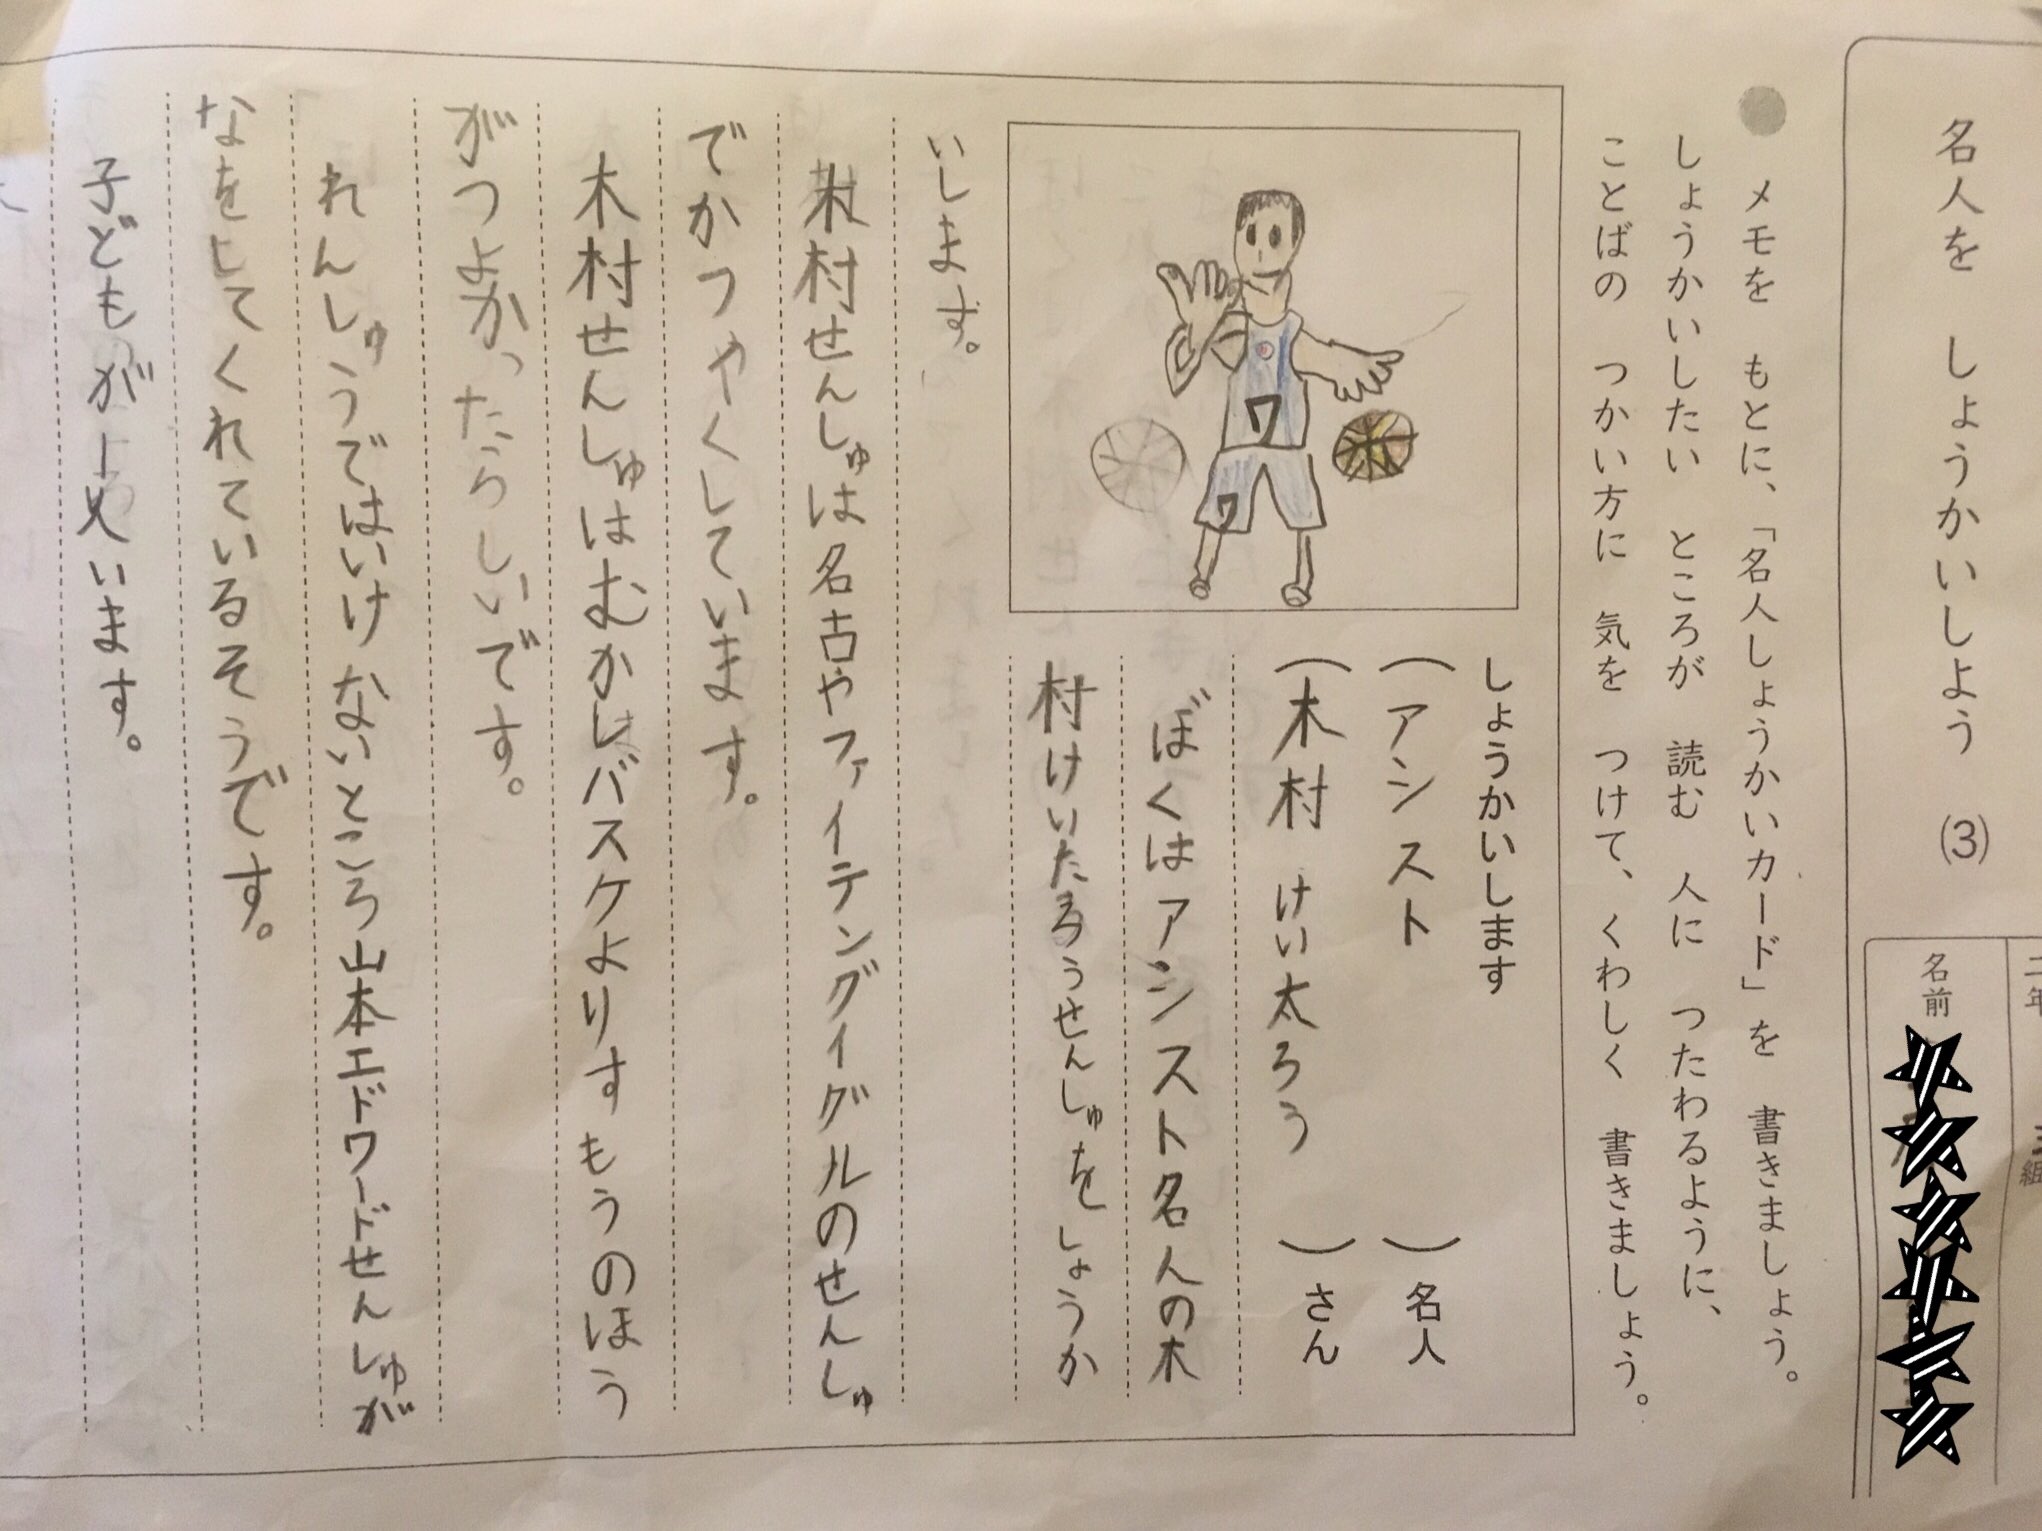 名人を しょうかいしよう (3)
二年 組
名前
● メモを もとに、「名人しょうかいカード」を 書きましょう。
しょうかいしたい ところが 読む 人に つたわるように、
ことばの つかい方に 気を つけて、くわしく 書きましょう。
しょうかいします
(アシスト)名人
(木村 けい太ろう)さん
ぼくはアシスト名人の木
村けいたろうせんしゅをしょうか
いします。
木村せんしゅは名古やファイテングイグルのせんしゅ
でかつやくしています。
木村せんしゅはむかしバスケよりすもうのほう
がつよかったらしいです。
れんしゅうではいけないところ山本エドワードせんしゅが
なをしてくれているそうです。
子どもが一人います。
7
7